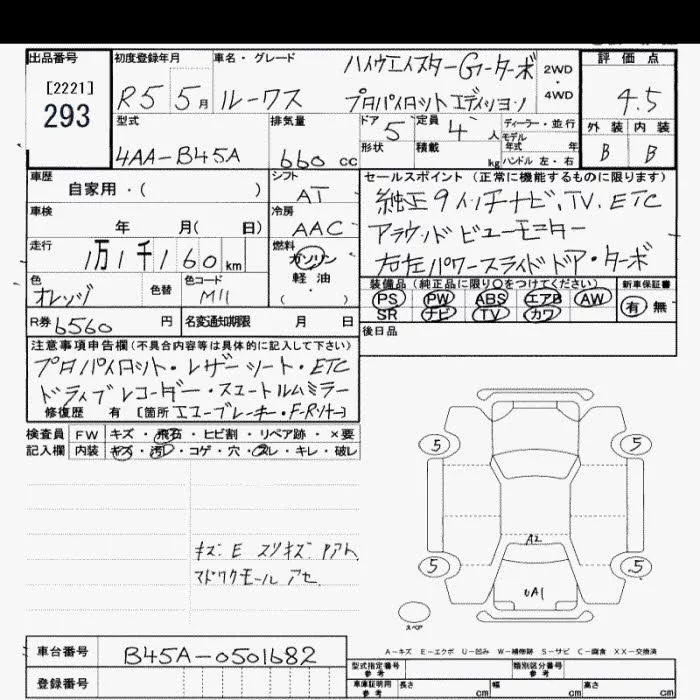 出品番号 初度登録年月 車名・グレード ハイウェイスターGターボ 2WD・4WD 評価点
[2221]
293
R5 5月 ルークス プロパイロットエディション 4.5
型式 排気量 ドア 5 定員 4 人 ディーラー・並行 外装 内装
モデル年式 年
4AA-B45A 660 cc 形状 積載 kg ハンドル 左・右 B B
車歴 自家用・( ) シフト AT セールスポイント (正常に機能するものに限ります)
車検 年 月( 日) 冷房 AAC 純正9インチナビ、TV、ETC
走行 1万1千160km 燃料 ガソリン アラウンドビューモニター
軽油 ( ) 右左パワースライドドア・ターボ
色 オレンジ 色替 色コード M11 装備品(純正品に限り○をつけてください) 新車保証書
PS PW ABS エアB AW 有 無
SR ナビ TV カワ
R券 6560 円 名変通知期限 月 日 後日品
注意事項申告欄(不具合内容等は具体的に記入して下さい)
プロパイロット・レザーシート・ETC
ドライブレコーダー・スマートルムミラー
修復歴 有 [箇所 エコーブレーキ・F-Rソナー]
検査員 FW キズ・飛石・ヒビ割・リペア跡・×要
記入欄 内装 キズ・汚レ・コゲ・穴・スレ・キレ・破レ
5 5
キズ E スリキズ アト
マドワクモール アセ
A2
5 5
UA1
スペア
A-キズ E-エクボ U-凹み W-補修跡 S-サビ C-腐食 XX-交換済
車台番号 B45A-0501682
型式指定番号 参考 類別区分番号 参考
登録番号 車庫証明用 参考 長さ cm 幅 cm 高さ cm